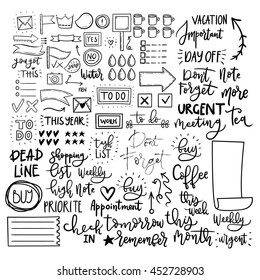 VACATION
Important
DAY OFF
YES
NO
forget
THIS
Water
Don't Note
Forget more
URGENT
meeting Tea
TO DO
TO
DO
THIS YEAR
WORK
to do
DEAD
LINE
shopping
list
TASK
LIST
Don't
Forget
buy
Coffee
Weekly
high Note
buy
BUY
PRIORITE
Appointment
this
week
Weekly
check
IN
tomorrow
remember
this
Month
urgent
452728903